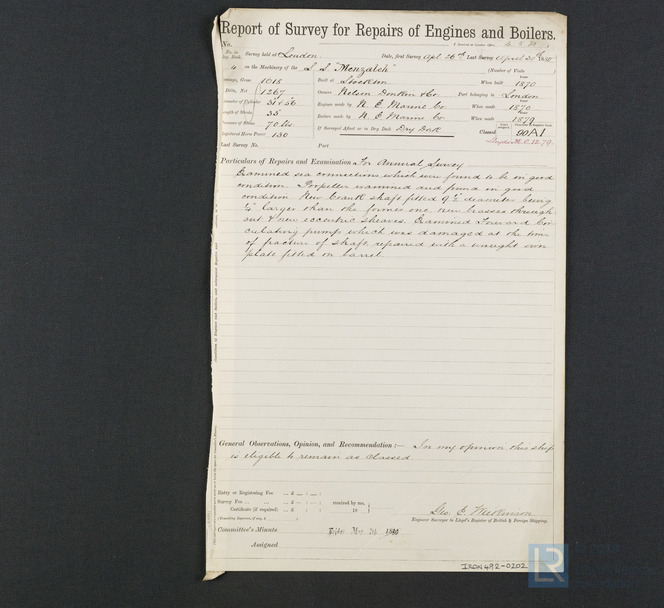 Report of Survey for Repairs of Engines and Boilers.
No.
Survey held at London Date, first Survey Apl 26th Last Survey April 30th 1880
4 on the Machinery of the S. S. "Menzaleh" (Number of Visits
Tonnage, Gross 1015 Built at Stockton When built 1870
Ditto, Net 1267 Owners Nelson Donkin & Co Port belonging to London
Diameter of Cylinder 31 & 56 Engines made by N. E. Marine Co When made 1870
Length of Stroke 35 Boilers made by N. E. Marine Co When made 1870
Pressure of Steam 70 lbs. If Surveyed Afloat or in Dry Dock Dry Dock Classed 90A1
Registered Horse Power 130 Lloyds M.C. 12.79.
Last Survey No. Port
Particulars of Repairs and Examination For Annual Survey
Examined sea connections which were found to be in good
condition. Propeller examined and found in good
condition New Crank shaft fitted 9½ diameter being
¼" larger than the former one new brasses through
out & new eccentric sheaves. Examined Forward Cir
culating pump which was damaged at the time
of fracture of shaft repaired with a wrought iron
plate fitted on barrel.
General Observations, Opinion, and Recommendation :— In my opinion this ship
is eligible to remain as classed
Entry or Registering Fee ... £
Survey Fee ... £ received by me,
Certificate (if required) ... £ 18
(Travelling Expenses, if any, £ )
Geo. E.
Engineer Surveyor to Lloyd's Register of British & Foreign Shipping.
Committee's Minute Friday May 1880
Assigned
IRON492-0202
LR